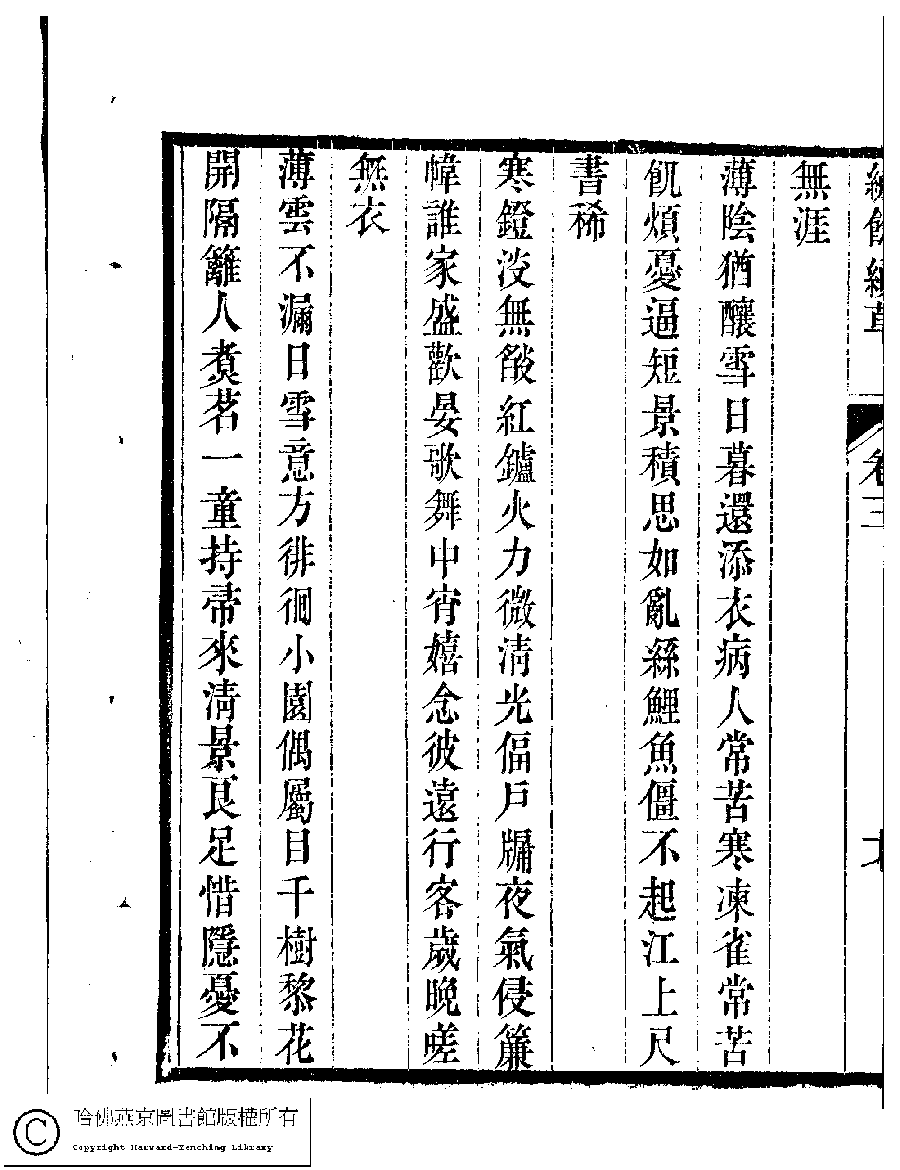 卷三
無涯
薄陰猶釀雪日暮還添衣病人常苦寒凍雀常苦
飢煩憂逼短景積思如亂絲鯉魚僵不起江上尺
書稀
寒鐙没無燄紅鑪火力微清光偪戶牖夜氣侵簾
幃誰家盛歡晏歌舞中宵嬉念彼遠行客歲晚嗟
無衣
薄雲不漏日雪意方徘徊小園偶屬目千樹黎花
開隔籬人煑茗一童持帚來清景良足惜隱憂不
哈佛燕京圖書館版權所有
Copyright Harvard-Yenching Library